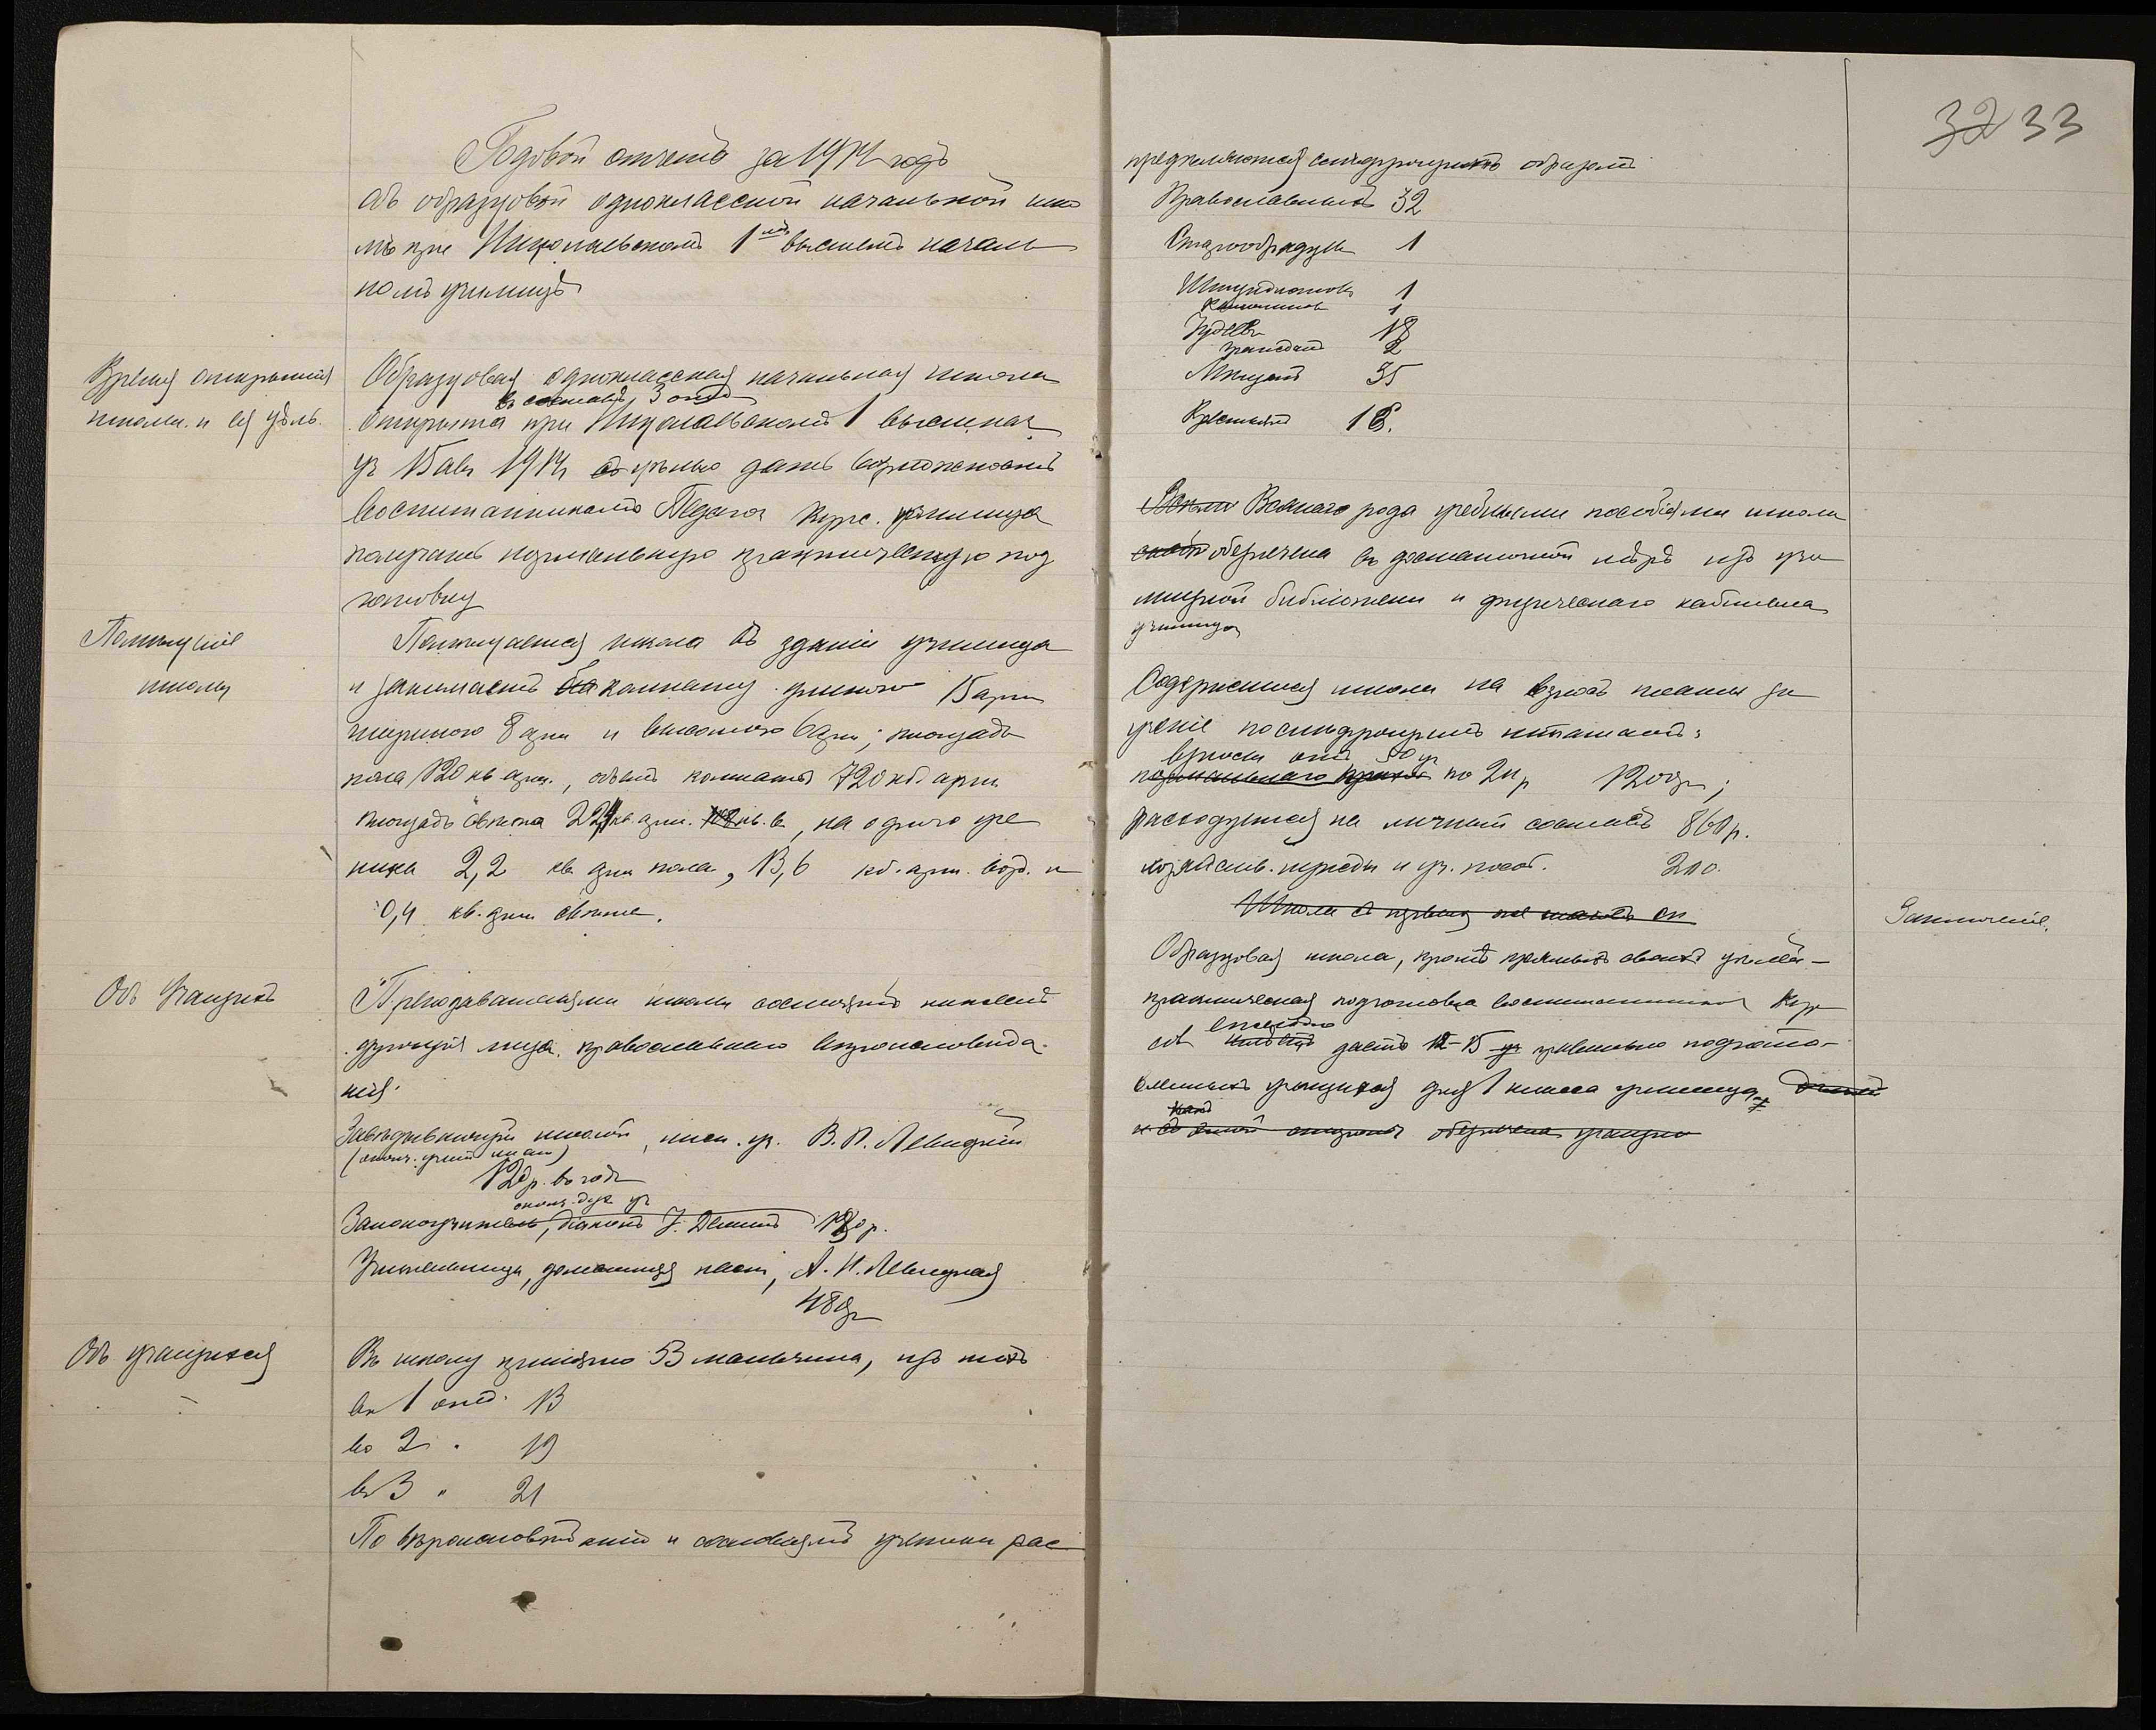 Годовой отчетъ за 1914 годъ
объ образцовой одноклассной начальной шко
лѣ при Николаевскомъ 1мъ высшемъ началь
номъ училищѣ
Время открытія
школы и ея цѣль.
Образцовая одноклассная начальная школа
въ составѣ 3 отд
открыта при Николаевскомъ 1 высш. нач.
уч 15 авг 1914 съ цѣлью дать возможность
воспитанникамъ Педагог Курс. училища
получать правильную практическую под
готовку
Помѣщеніе
школы
Помѣщается школа въ зданіи училища
и занимаетъ комнату длиною 15 арш
шириною 8 арш и высотою 6 арш; площадь
пола 120 кв арш., объемъ комнаты 720 кб. арш.
площадь оконъ 22 кв. арш., на одного уче
ника 2,2 кв арш пола, 13,6 кб. арш. возд. и
0,4 кв. арш свѣта.
Объ Учащихъ
Преподавателями школы состоятъ нижеслѣ
дующія лица православнаго вѣроисповѣда
нія.
Завѣдывающій школой, инсп. уч. В. П. Левицкій
(оконч. учит инст)
120 р. въ годъ
оконч. дух уч
Законоучитель, діаконъ І. 180 р.
Учительница, домашняя наст, А. Н. Левицкая
480 р
Объ учащихся
Въ школу принято 53 мальчика, изъ нихъ
въ 1 отд. 13
во 2 " 19
въ 3 " 21
По вѣроисповѣданію и сословіямъ ученики рас
32 33
предѣляются слѣдующимъ образомъ
Православныхъ 32
Старообрядцевъ 1
Штундистовъ 1
Католиковъ 1
Іудеевъ 18
граждан 2
Мѣщанъ 35
Крестьянъ 16.
Всякаго рода учебными пособіями школа
обезпечена въ достаточной мѣрѣ изъ учи
лищной библіотеки и физическаго кабинета
училища
Содержится школа на взносъ платы за
ученіе по слѣдующимъ статьямъ:
взносы отъ 50 уч
по 24 р 1200 р;
расходуется на личный составъ 860 р.
хозяйств. нужды и уч. пособ. 210.
Школа
Заключеніе.
Образцовая школа, кромѣ прямыхъ своихъ цѣлей—
практическая подготовка воспитанниковъ Кур
совъ ежегодно даетъ 12-15 уч правильно подгото-
вленныхъ учащихся для 1 класса училища